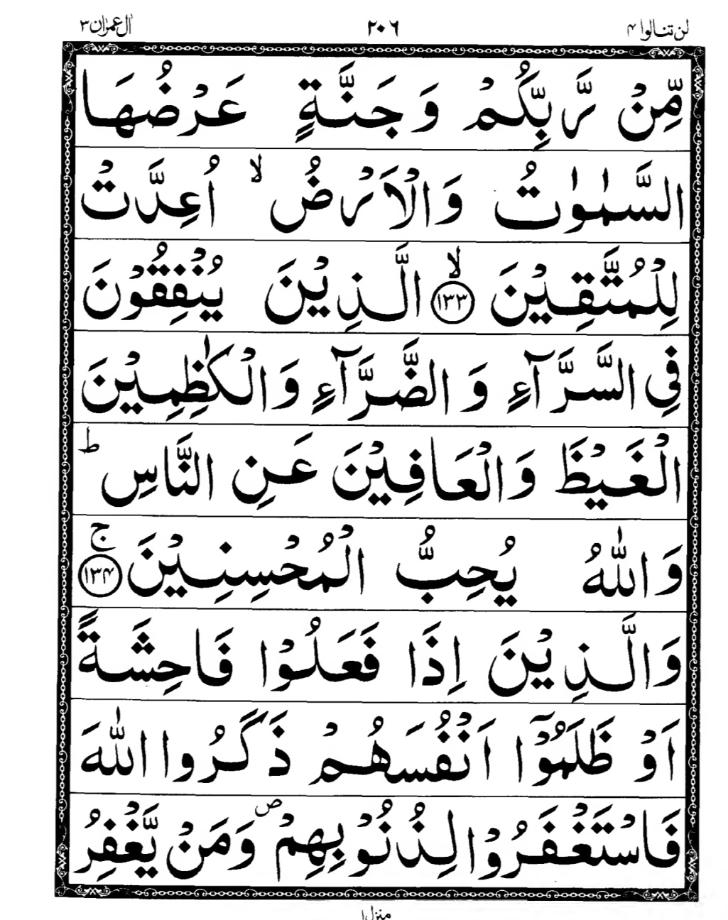 لن تنالوا ۴ ۲۰۶ ال عمرٰن ۳
مِّنْ رَّبِّكُمْ وَجَنَّةٍ عَرْضُهَا
السَّمٰوٰتُ وَالْاَرْضُ ۙ اُعِدَّتْ
لِلْمُتَّقِيْنَ ۙ‏﴿۱۳۳﴾ الَّذِيْنَ يُنْفِقُوْنَ
فِي السَّرَّآءِ وَ الضَّرَّآءِ وَالْكٰظِمِيْنَ
الْغَيْظَ وَالْعَافِيْنَ عَنِ النَّاسِ ؕ
وَاللّٰهُ يُحِبُّ الْمُحْسِنِيْنَ ۚ‏﴿۱۳۴﴾
وَالَّذِيْنَ اِذَا فَعَلُوْا فَاحِشَةً
اَوْ ظَلَمُوْۤا اَنْفُسَهُمْ ذَكَرُوا اللّٰهَ
فَاسْتَغْفَرُوْا لِذُنُوْبِهِمْ ۪ وَمَنْ يَّغْفِرُ
منزل ۱